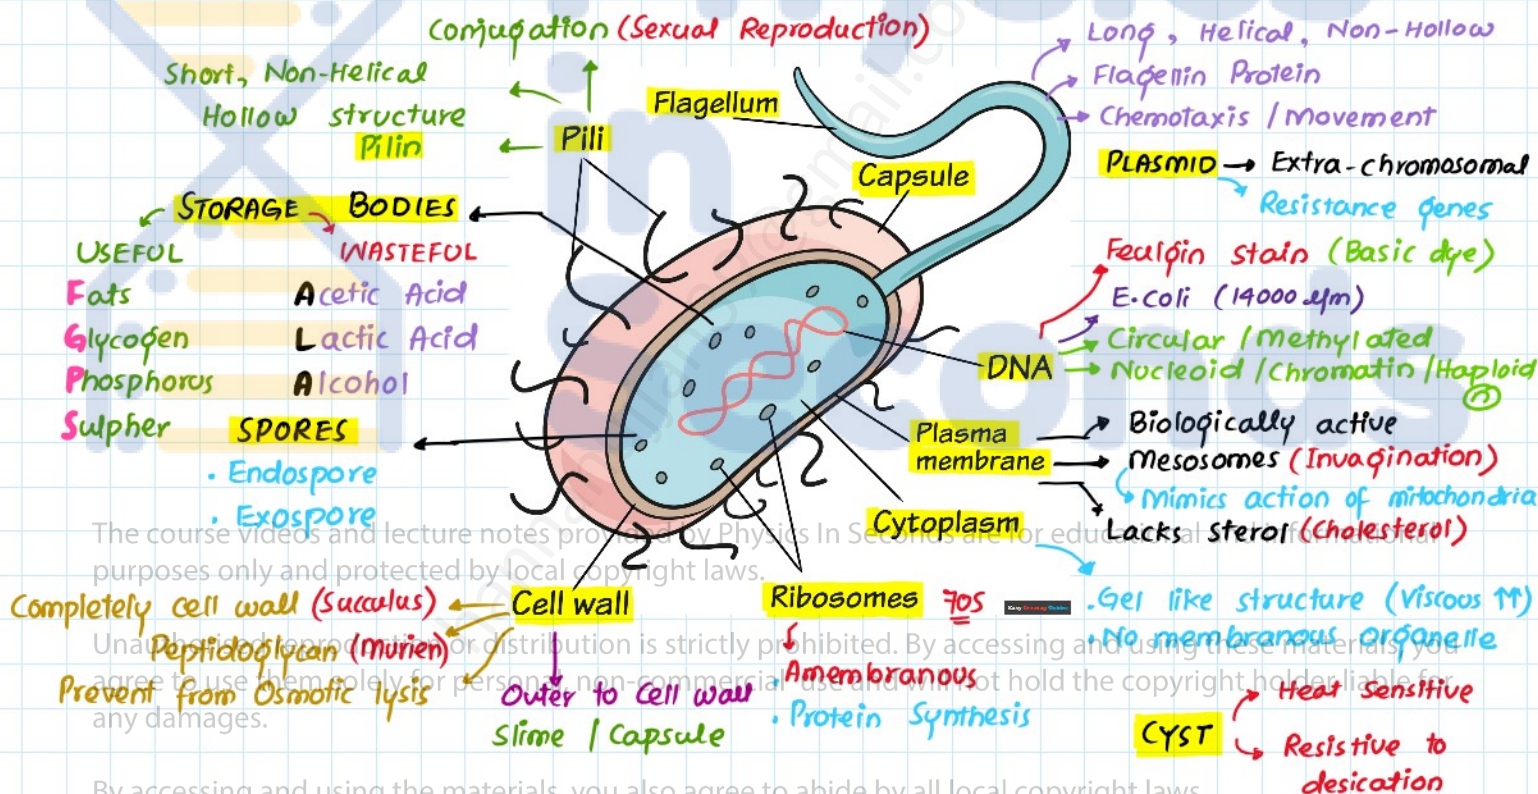 Conjugation (Sexual Reproduction)
Short, Non-Helical
Hollow structure
Pilin
Pili
Flagellum
Capsule
Long, Helical, Non-Hollow
Flagellin Protein
Chemotaxis / Movement
PLASMID → Extra-chromosomal
Resistance genes
STORAGE BODIES
USEFUL
WASTEFUL
Fats
Acetic Acid
Glycogen
Lactic Acid
Phosphorus
Alcohol
Sulpher
SPORES
• Endospore
• Exospore
DNA
Feulgin stain (Basic dye)
E.coli (14000 µm)
Circular / Methylated
Nucleoid / Chromatin / Haploid
n
Plasma
membrane
Biologically active
Mesosomes (Invagination)
Mimics action of mitochondria
Lacks sterol (Cholesterol)
Cytoplasm
• Gel like structure (Viscous ↑↑)
• No membranous organelle
Cell wall
Completely cell wall (Succulus)
Peptidoglycan (murien)
Prevent from Osmotic lysis
Outer to Cell wall
Slime / Capsule
Ribosomes 70S
• Amembranous
• Protein Synthesis
CYST
Heat Sensitive
Resistive to
desication
in
econds
The course videos and lecture notes provided by Physics In Seconds are for educational
purposes only and protected by local copyright laws.
distribution is strictly prohibited. By accessing and using these materials, you
agree to use them solely for personal, non-commercial use and will not hold the copyright holder liable for
any damages.
By accessing and using the materials, you also agree to abide by all local copyright laws